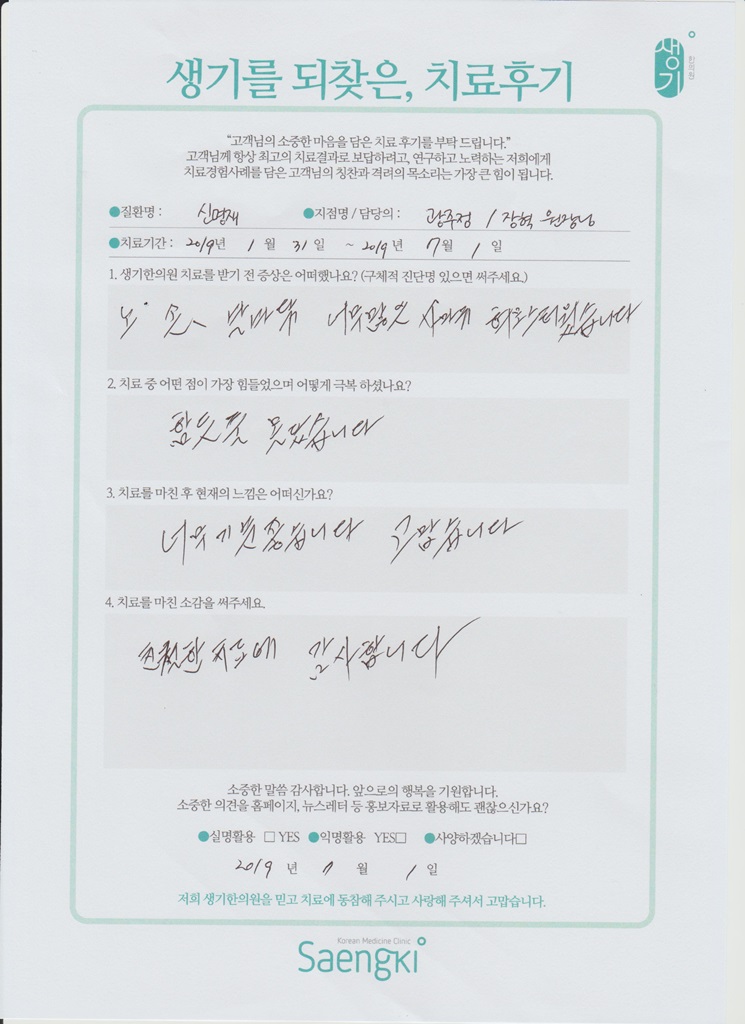 생기를 되찾은, 치료후기
생기
한의원
"고객님의 소중한 마음을 담은 치료 후기를 부탁 드립니다."
고객님께 항상 최고의 치료결과로 보답하려고, 연구하고 노력하는 저희에게
치료경험사례를 담은 고객님의 칭찬과 격려의 목소리는 가장 큰 힘이 됩니다.
●질환명 : 신명재 ●지점명 / 담당의 : 광주점 / 장혁 원장님
●치료기간 : 2019년 1 월 31 일 ~ 2019 년 7월 1 일
1. 생기한의원 치료를 받기 전 증상은 어떠했나요? (구체적 진단명 있으면 써주세요.)
발바닥 너무많은 사마귀
2. 치료 중 어떤 점이 가장 힘들었으며 어떻게 극복 하셨나요?
못했습니다
3. 치료를 마친 후 현재의 느낌은 어떠신가요?
너무 기분좋습니다 고맙습니다
4. 치료를 마친 소감을 써주세요.
친절한 치료에 감사합니다
소중한 말씀 감사합니다. 앞으로의 행복을 기원합니다.
소중한 의견을 홈페이지, 뉴스레터 등 홍보자료로 활용해도 괜찮으신가요?
●실명활용 □ YES ●익명활용 YES□ ●사양하겠습니다□
2019 년 7 월 1 일
저희 생기한의원을 믿고 치료에 동참해 주시고 사랑해 주셔서 고맙습니다.
Korean Medicine Clinic
Saengki